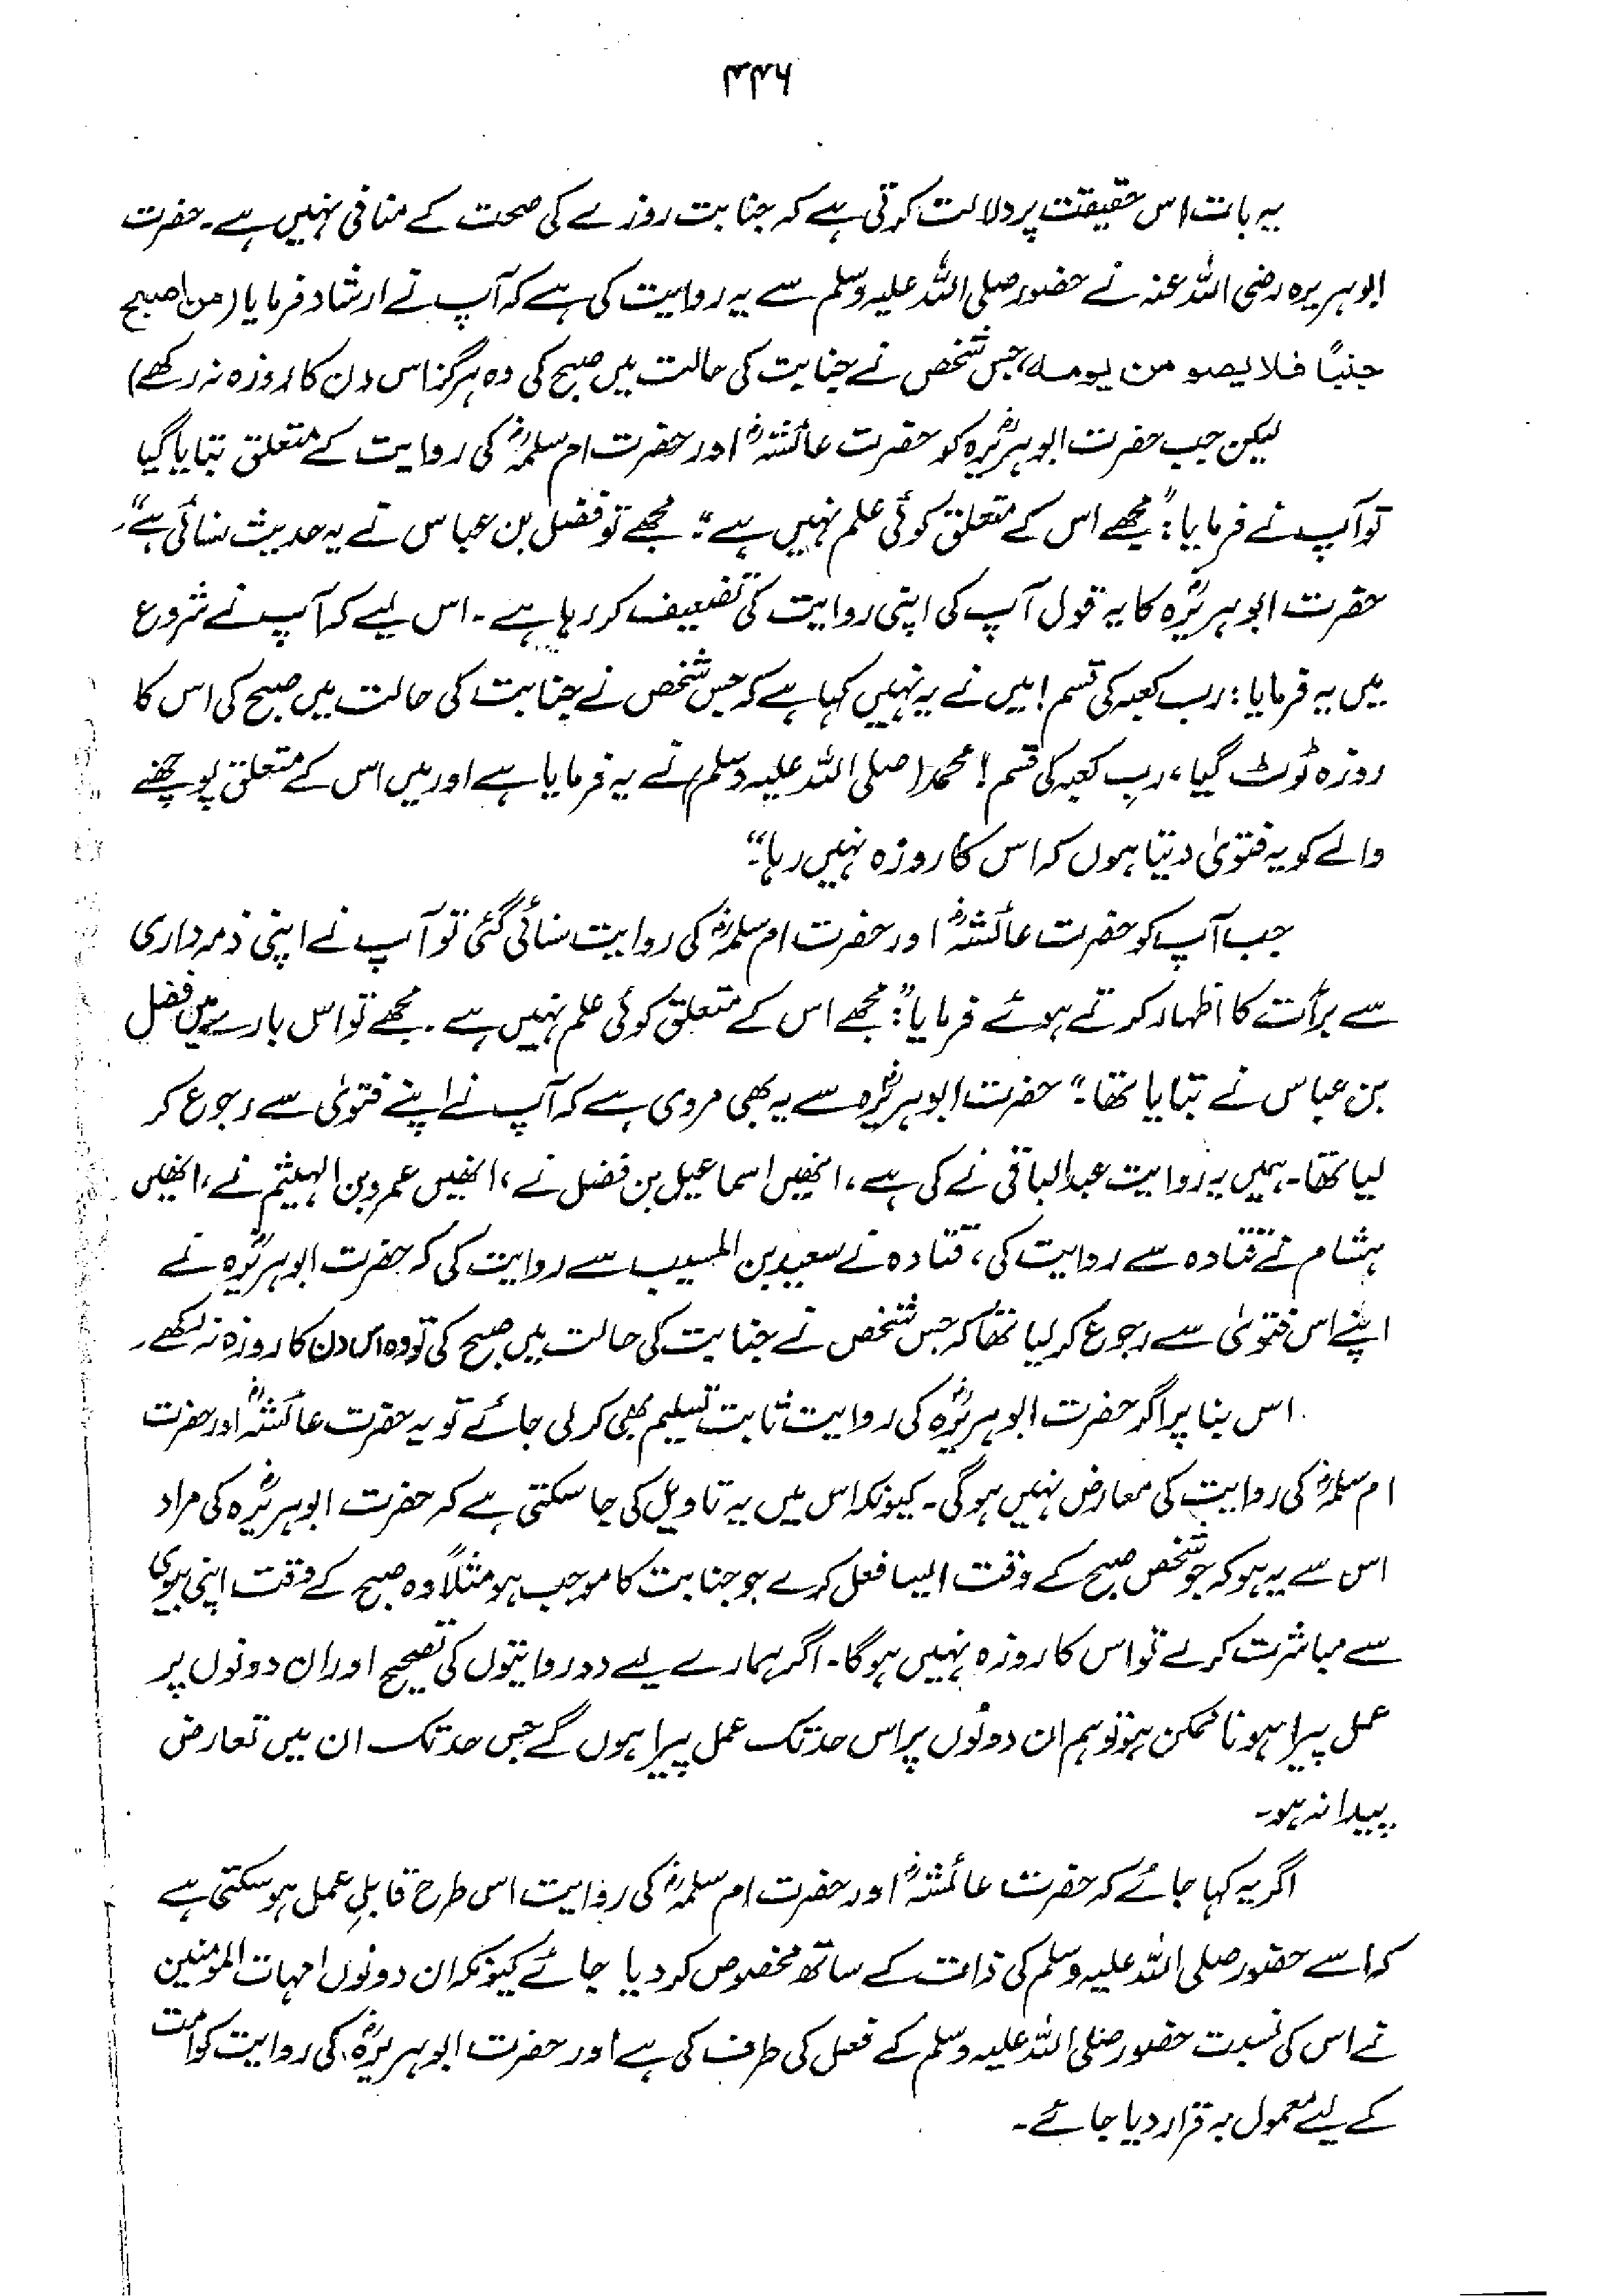 ۴۴۶
یہ بات اس حقیقت پر دلالت کرتی ہے کہ جنابت روزے کی صحت کے منافی نہیں ہے۔ حضرت
ابوہریرہ رضی اللہ عنہ نے حضور صلی اللہ علیہ وسلم سے یہ روایت کی ہے کہ آپ نے ارشاد فرمایا (من اصبح
جنبًا فلا یصومن یومہ، جس شخص نے جنابت کی حالت میں صبح کی وہ ہرگز اس دن کا روزہ نہ رکھے)
لیکن جب حضرت ابوہریرہؓ کو حضرت عائشہؓ اور حضرت ام سلمہؓ کی روایت کے متعلق بتایا گیا
تو آپ نے فرمایا: "مجھے اس کے متعلق کوئی علم نہیں ہے"۔ مجھے تو فضل بن عباس نے یہ حدیث سنائی ہے"۔
حضرت ابوہریرہؓ کا یہ قول آپ کی اپنی روایت کی تضعیف کر رہا ہے۔ اس لیے کہ آپ نے شروع
میں یہ فرمایا: رب کعبہ کی قسم! میں نے یہ نہیں کہا ہے کہ جس شخص نے جنابت کی حالت میں صبح کی اس کا
روزہ ٹوٹ گیا، رب کعبہ کی قسم! محمد (صلی اللہ علیہ وسلم) نے یہ فرمایا ہے اور میں اس کے متعلق پوچھنے
والے کو یہ فتویٰ دیتا ہوں کہ اس کا روزہ نہیں رہا"۔
جب آپ کو حضرت عائشہؓ اور حضرت ام سلمہؓ کی روایت سنائی گئی تو آپ نے اپنی ذمہ داری
سے برأت کا اظہار کرتے ہوئے فرمایا: "مجھے اس کے متعلق کوئی علم نہیں ہے۔ مجھے تو اس بارے میں فضل
بن عباس نے بتایا تھا۔" حضرت ابوہریرہؓ سے یہ بھی مروی ہے کہ آپ نے اپنے فتویٰ سے رجوع کر
لیا تھا۔ ہمیں یہ روایت عبدالباقی نے کی ہے، انھیں اسماعیل بن فضل نے، انھیں عمرو بن الہیثم نے، انھیں
ہشام نے قتادہ سے روایت کی، قتادہ نے سعید بن المسیب سے روایت کی کہ حضرت ابوہریرہؓ نے
اپنے اس فتویٰ سے رجوع کر لیا تھا کہ جس شخص نے جنابت کی حالت میں صبح کی تو وہ اس دن کا روزہ نہ رکھے۔
اس بنا پر اگر حضرت ابوہریرہؓ کی روایت ثابت تسلیم بھی کر لی جائے تو یہ حضرت عائشہؓ اور حضرت
ام سلمہؓ کی روایت کی معارض نہیں ہوگی۔ کیونکہ اس میں یہ تاویل کی جا سکتی ہے کہ حضرت ابوہریرہؓ کی مراد
اس سے یہ ہو کہ جو شخص صبح کے وقت ایسا فعل کرے جو جنابت کا موجب ہو مثلاً وہ صبح کے وقت اپنی بیوی
سے مباشرت کرلے تو اس کا روزہ نہیں ہوگا۔ اگر ہمارے لیے دو روایتوں کی تصحیح اور ان دونوں پر
عمل پیرا ہونا ممکن ہو تو ہم ان دونوں پر اس حد تک عمل پیرا ہوں گے جس حد تک ان میں تعارض
پیدا نہ ہو۔
اگر یہ کہا جائے کہ حضرت عائشہؓ اور حضرت ام سلمہؓ کی روایت اس طرح قابلِ عمل ہو سکتی ہے
کہ اسے حضور صلی اللہ علیہ وسلم کی ذات کے ساتھ مخصوص کر دیا جائے کیونکہ ان دونوں امہات المومنین
نے اس کی نسبت حضور صلی اللہ علیہ وسلم کے فعل کی طرف کی ہے اور حضرت ابوہریرہؓ کی روایت کو امت
کے لیے معمول بہ قرار دیا جائے۔